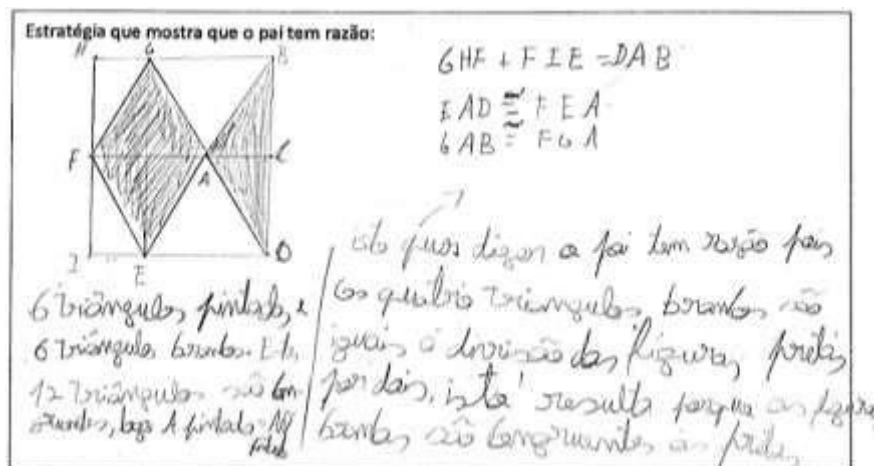 Estratégia que mostra que o pai tem razão:
H G B
GHF + FIE = DAB
EAD ≅ FEA
GAB ≅ FGA
F A C
I E D
6 triângulos pintados, e
6 triângulos brancos. E os
12 triângulos são con-
gruentes, logo A pintada = Não
pintada
isto quer dizer o pai tem razão pois
os quatro triangulos brancos são
iguais á divisão das figuras pretas
por dois, isto resulta porque as figuras
brancas são congruentes as pretas